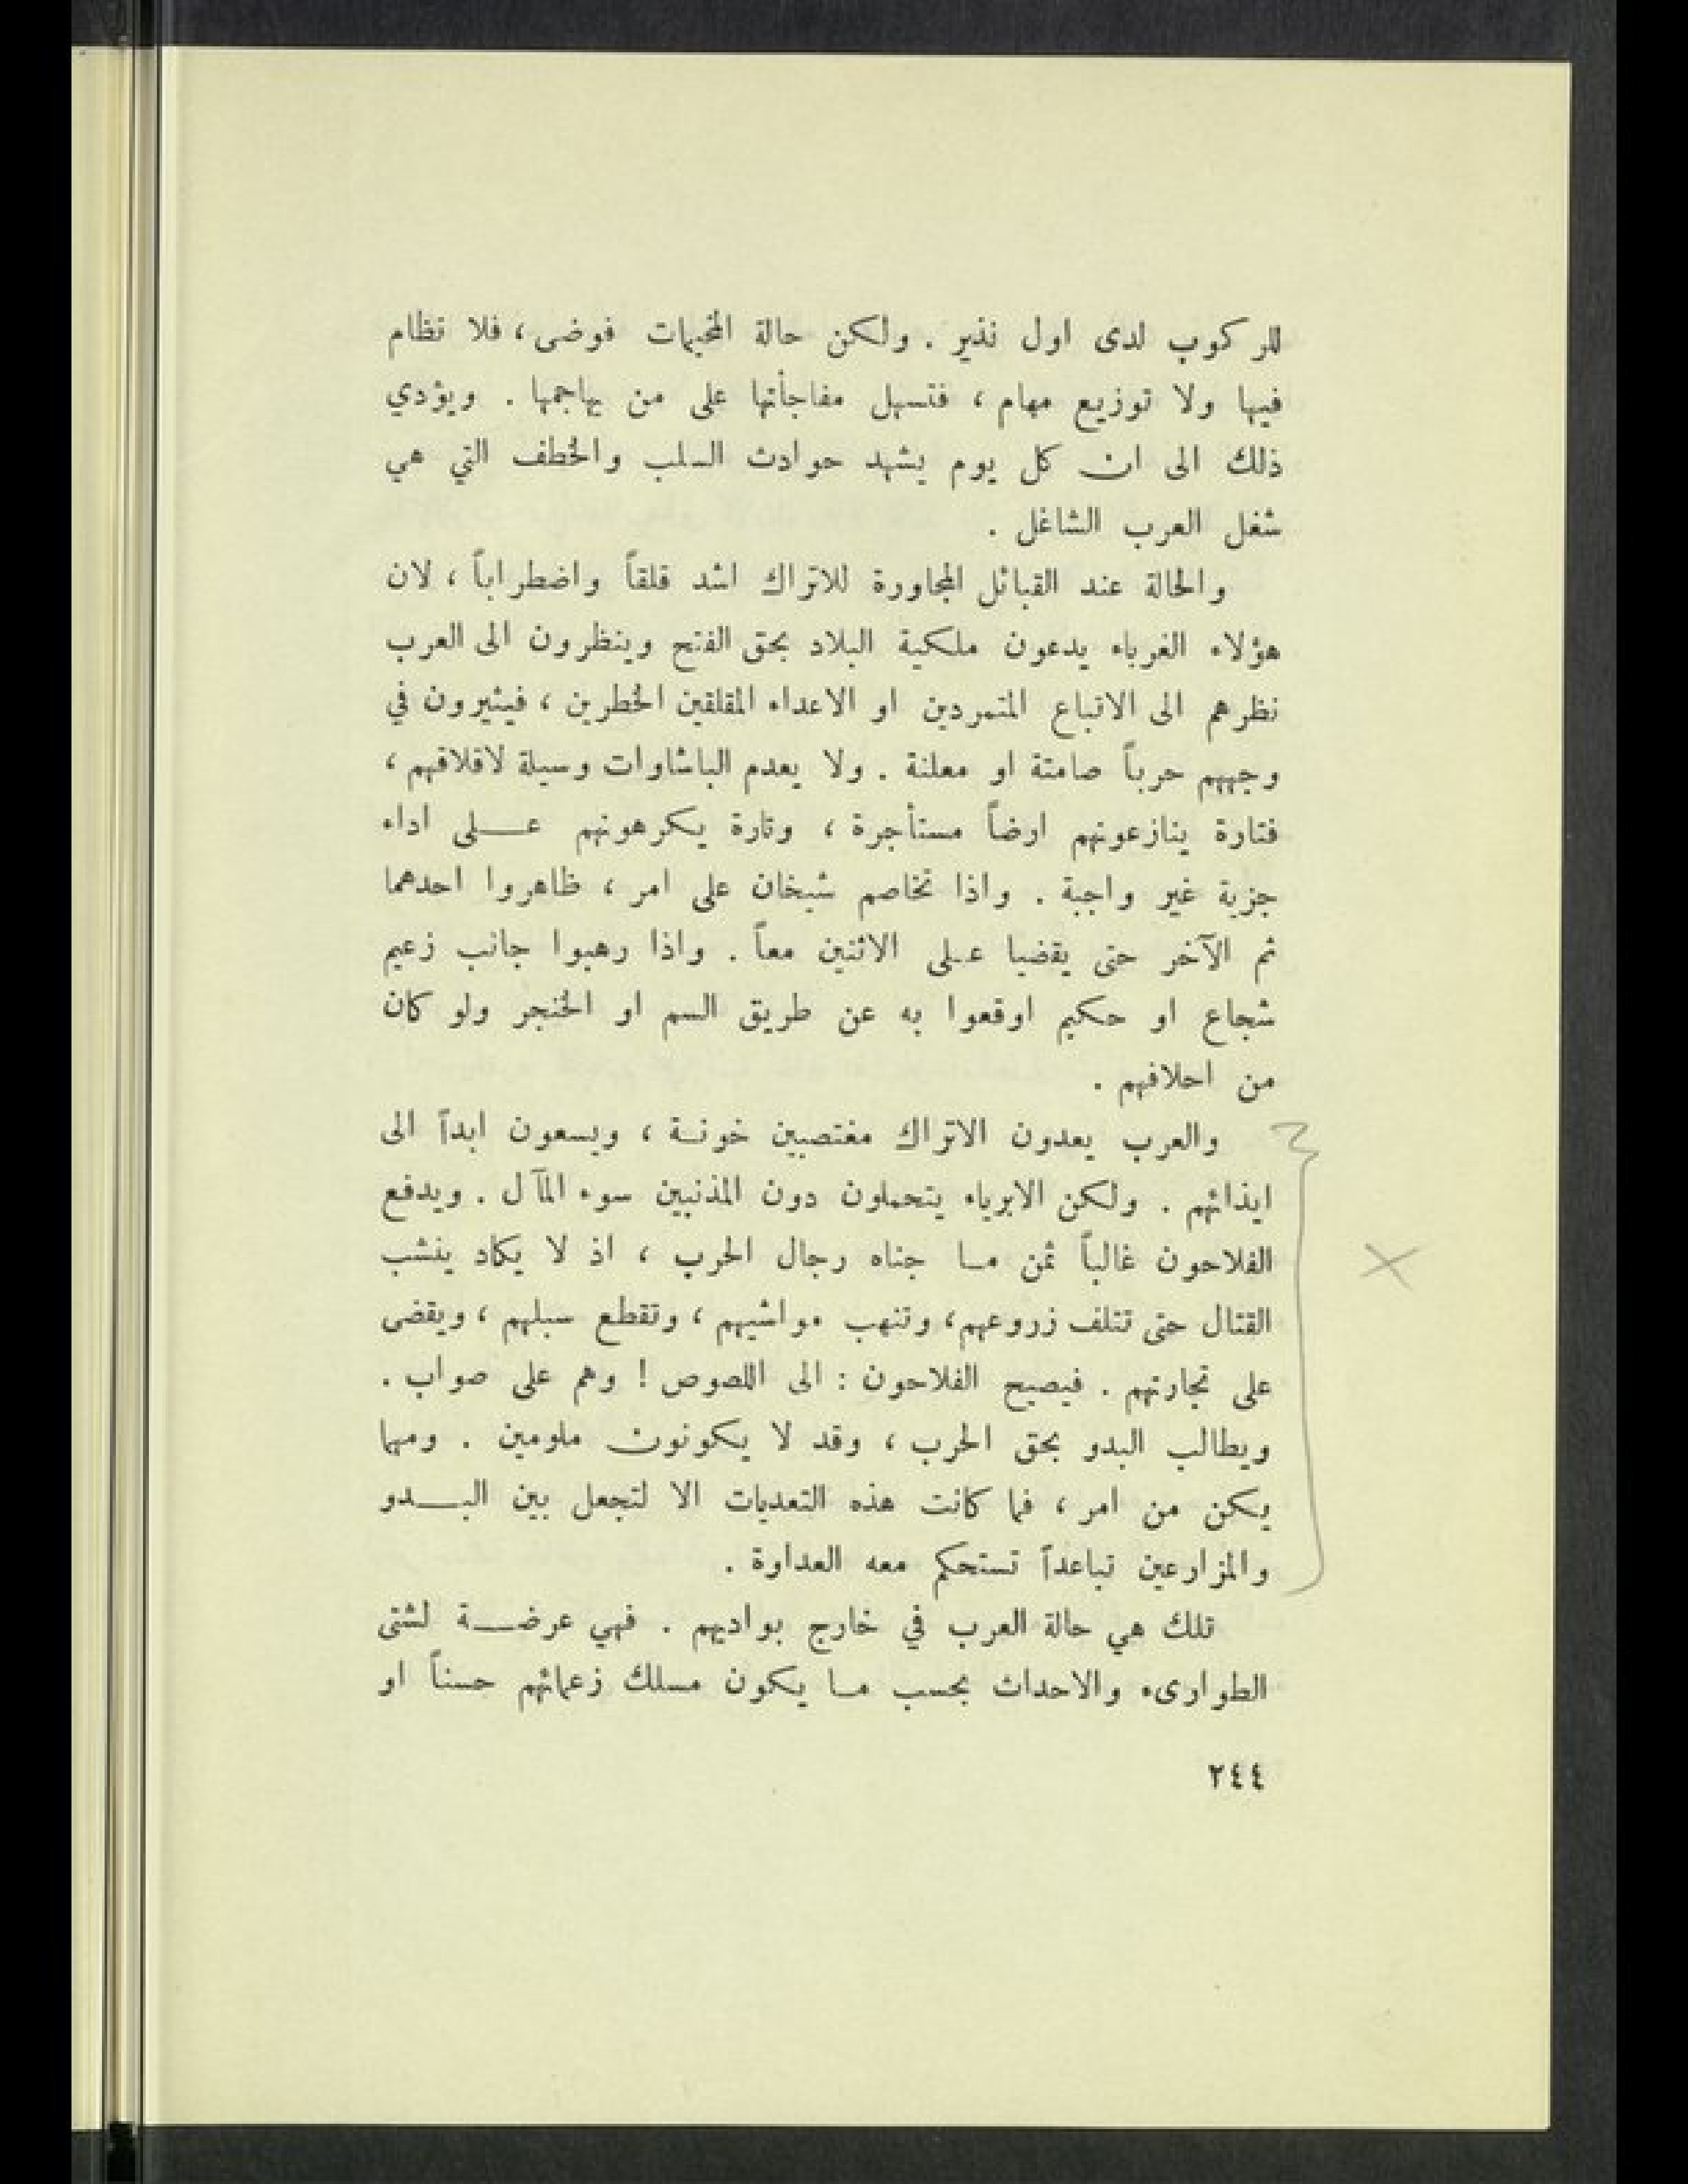 للركوب لدى اول نذير . ولكن حالة المخيمات فوضى ، فلا نظام
فيها ولا توزيع مهام ، فتسهل مفاجأتها على من يهاجمها . ويؤدي
ذلك الى ان كل يوم يشهد حوادث السلب والخطف التي هي
شغل العرب الشاغل .
والحالة عند القبائل المجاورة للاتراك اشد قلقاً واضطراباً ، لان
هؤلاء الغرباء يدعون ملكية البلاد بحق الفتح وينظرون الى العرب
نظرهم الى الاتباع المتمردين او الاعداء المقلقين الخطرين ، فيثيرون في
وجههم حرباً صامتة او معلنة . ولا يعدم الباشاوات وسيلة لاقلاقهم ،
فتارة ينازعونهم ارضاً مستأجرة ، وتارة يكرهونهم عـــلى اداء
جزية غير واجبة . واذا تخاصم شيخان على امر ، ظاهروا احدهما
ثم الآخر حتى يقضيا عـلى الاثنين معاً . واذا رهبوا جانب زعيم
شجاع او حكيم اوقعوا به عن طريق السم او الخنجر ولو كان
من احلافهم .
والعرب يعدون الاتراك مغتصبين خونـة ، ويسعون ابداً الى
ايذائهم . ولكن الابرياء يتحملون دون المذنبين سوء المآل . ويدفع
الفلاحون غالباً ثمن مـا جناه رجال الحرب ، اذ لا يكاد ينشب
القتال حتى تتلف زروعهم ، وتنهب مواشيهم ، وتقطع سبلهم ، ويقضى
على تجارتهم . فيصيح الفلاحون : الى اللصوص ! وهم على صواب .
ويطالب البدو بحق الحرب ، وقد لا يكونون ملومين . ومهما
يكن من امر ، فما كانت هذه التعديات الا لتجعل بين البـــدو
والمزارعين تباعداً تستحكم معه العداوة .
تلك هي حالة العرب في خارج بواديهم . فهي عرضـــة لشتى
الطوارىء والاحداث بحسب مـا يكون مسلك زعمائهم حسناً او
٢٤٤